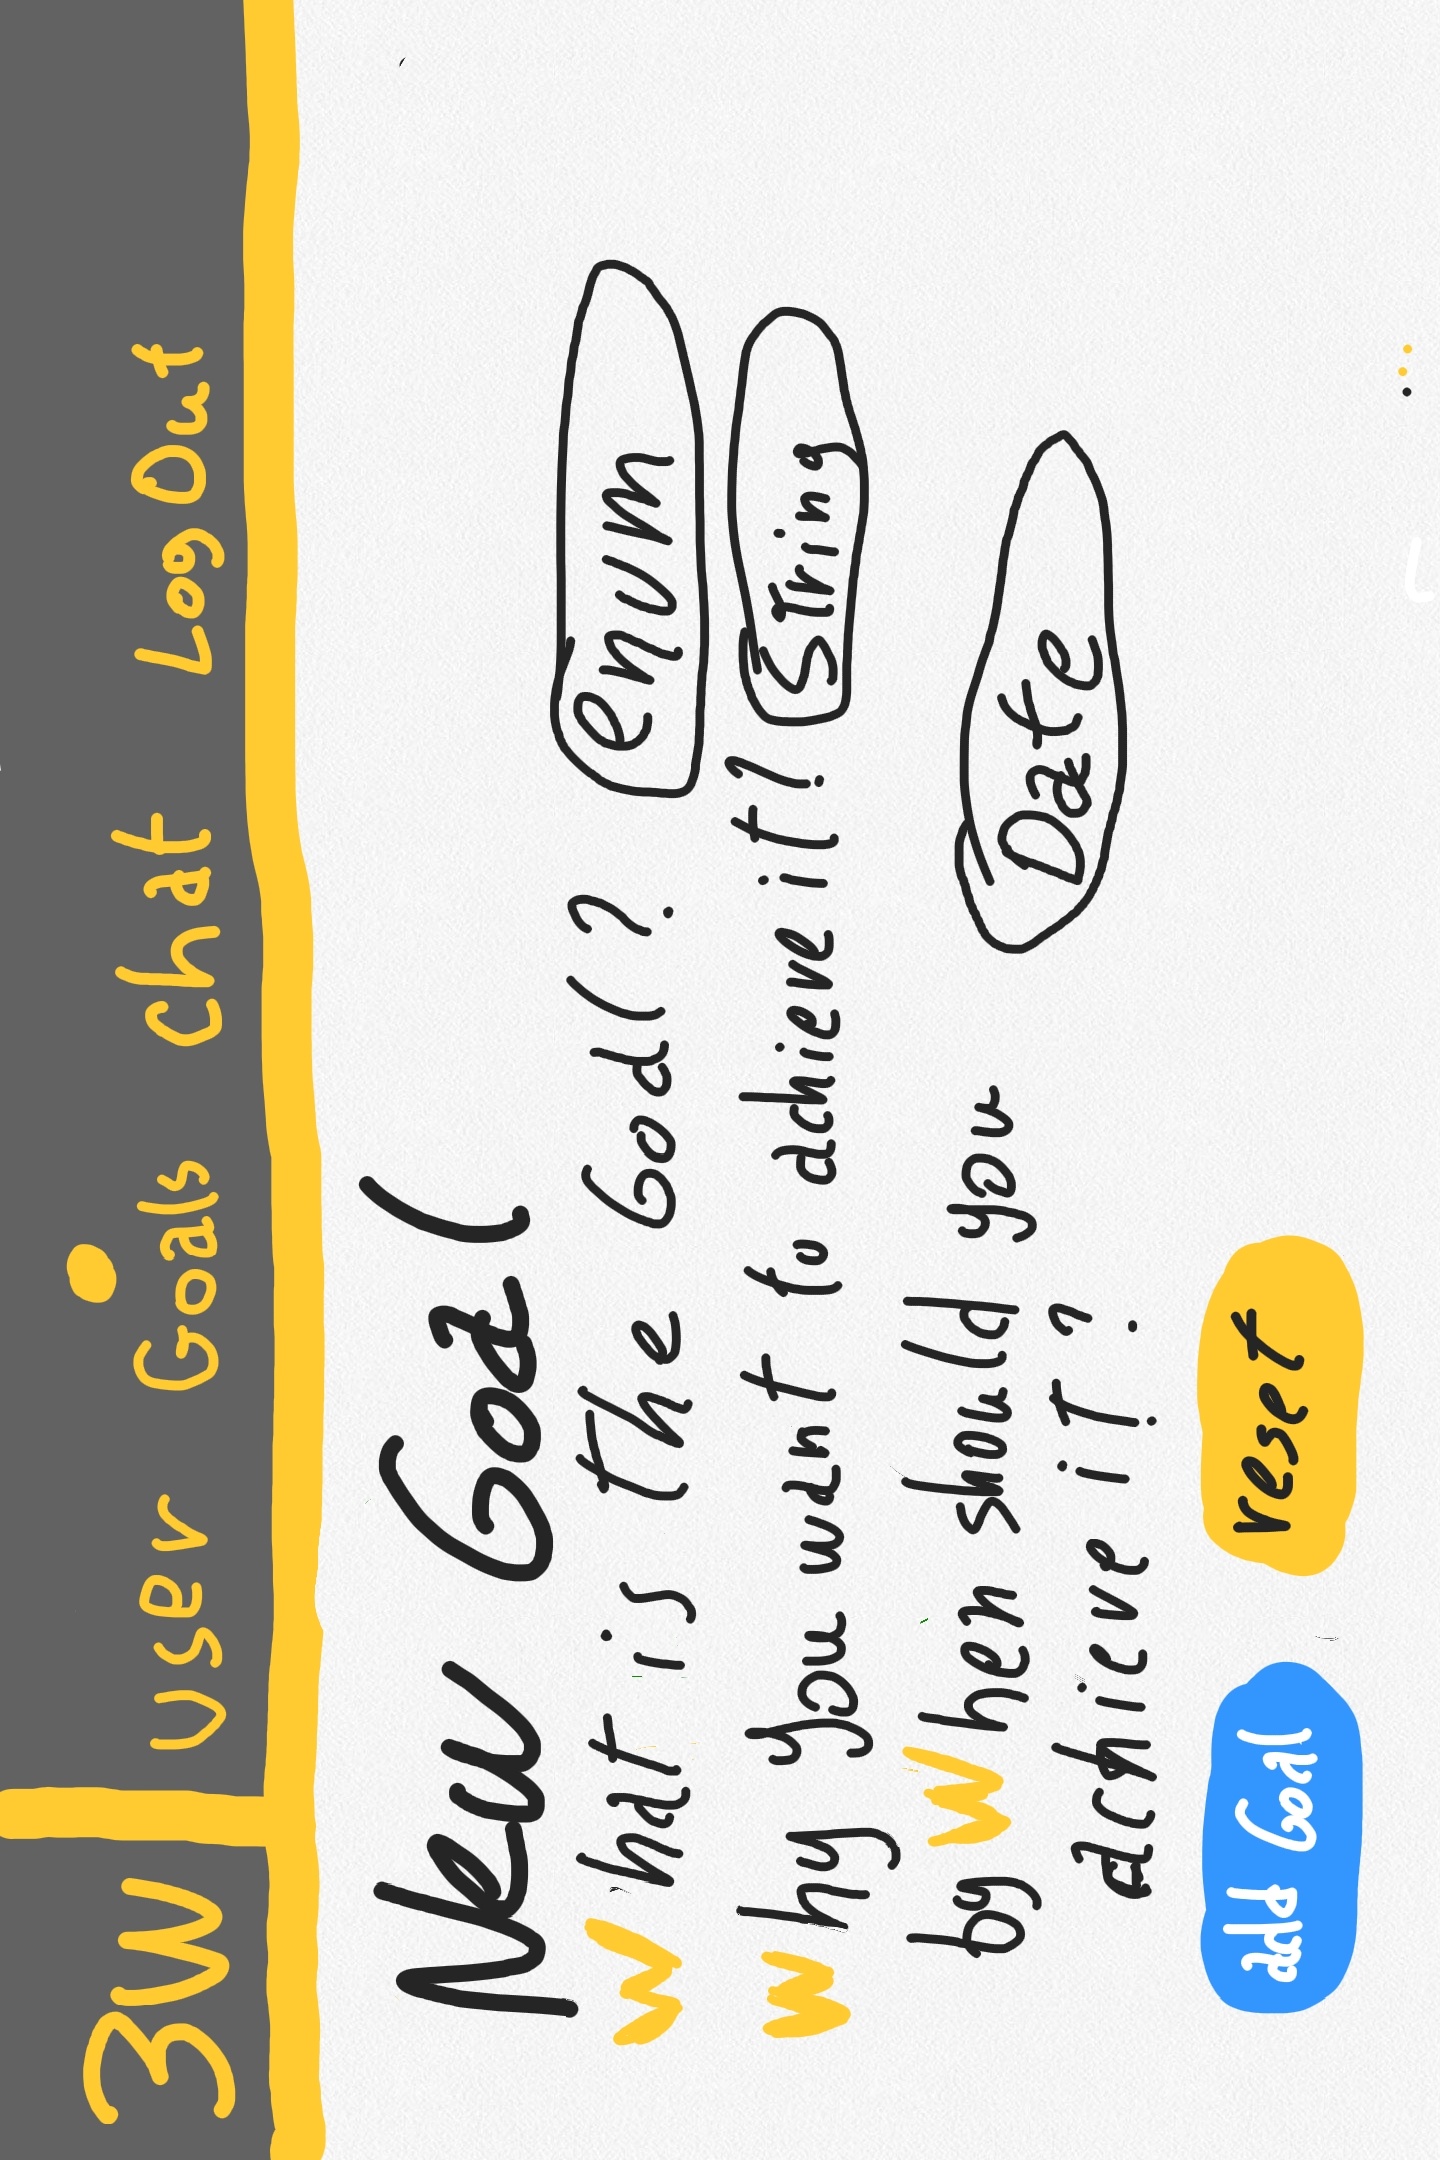 3W user Goals chat LogOut
New Goal
What is the Goal? enum
Why you want to achieve it? String
by When should you Date
achieve it?
add Goal reset